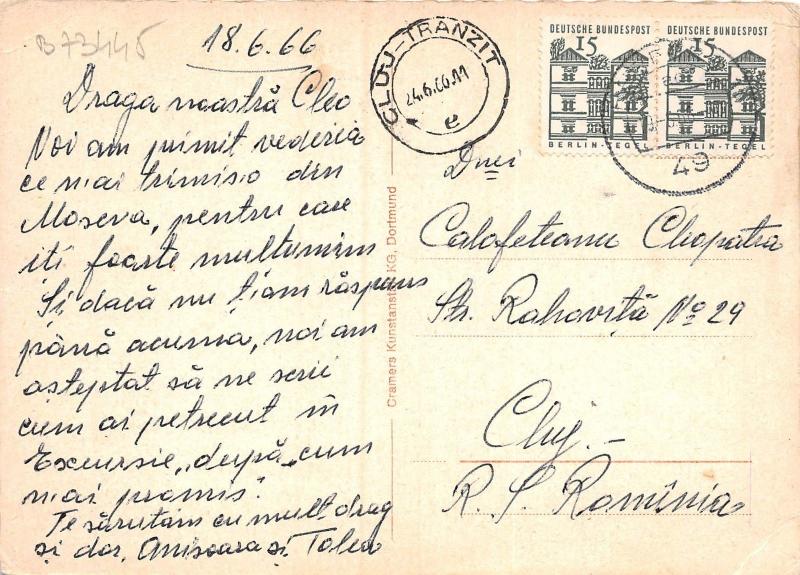 B 73445
18.6.66
Draga noastră Cleo
Noi am primit vederea
ce niai trimiso din
Moscva, pentru care
iti foarte multumim
Și dacă nu ț-iam răspuns
până acuma, noi am
așteptat să ne scrii
cum ai petrecut în
Excursie, „după„ cum
niai promis".
Te sărutăm cu mult drag
și dor, Anișoara și Tolea
CLUJ-TRANZIT
24.6.66.11
e
DEUTSCHE BUNDESPOST
15
BERLIN-TEGEL
DEUTSCHE BUNDESPOST
15
BERLIN-TEGEL
49
Cramers Kunstanstalt KG, Dortmund
Dnei
Calafeteanu Cleopatra
Str. Rahovița No 29
Cluj.-
R. S. România